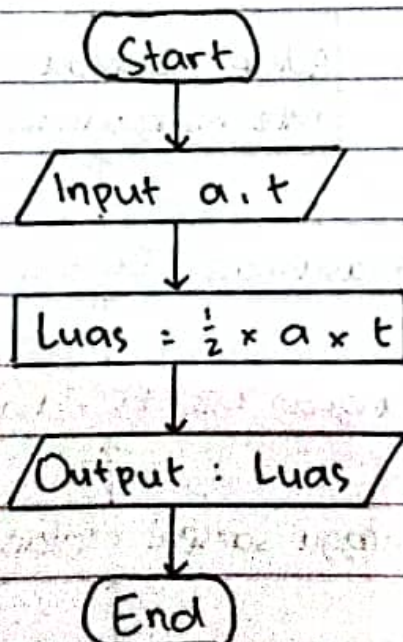 Start
Input a, t
Luas = ½ × a × t
Output : Luas
End